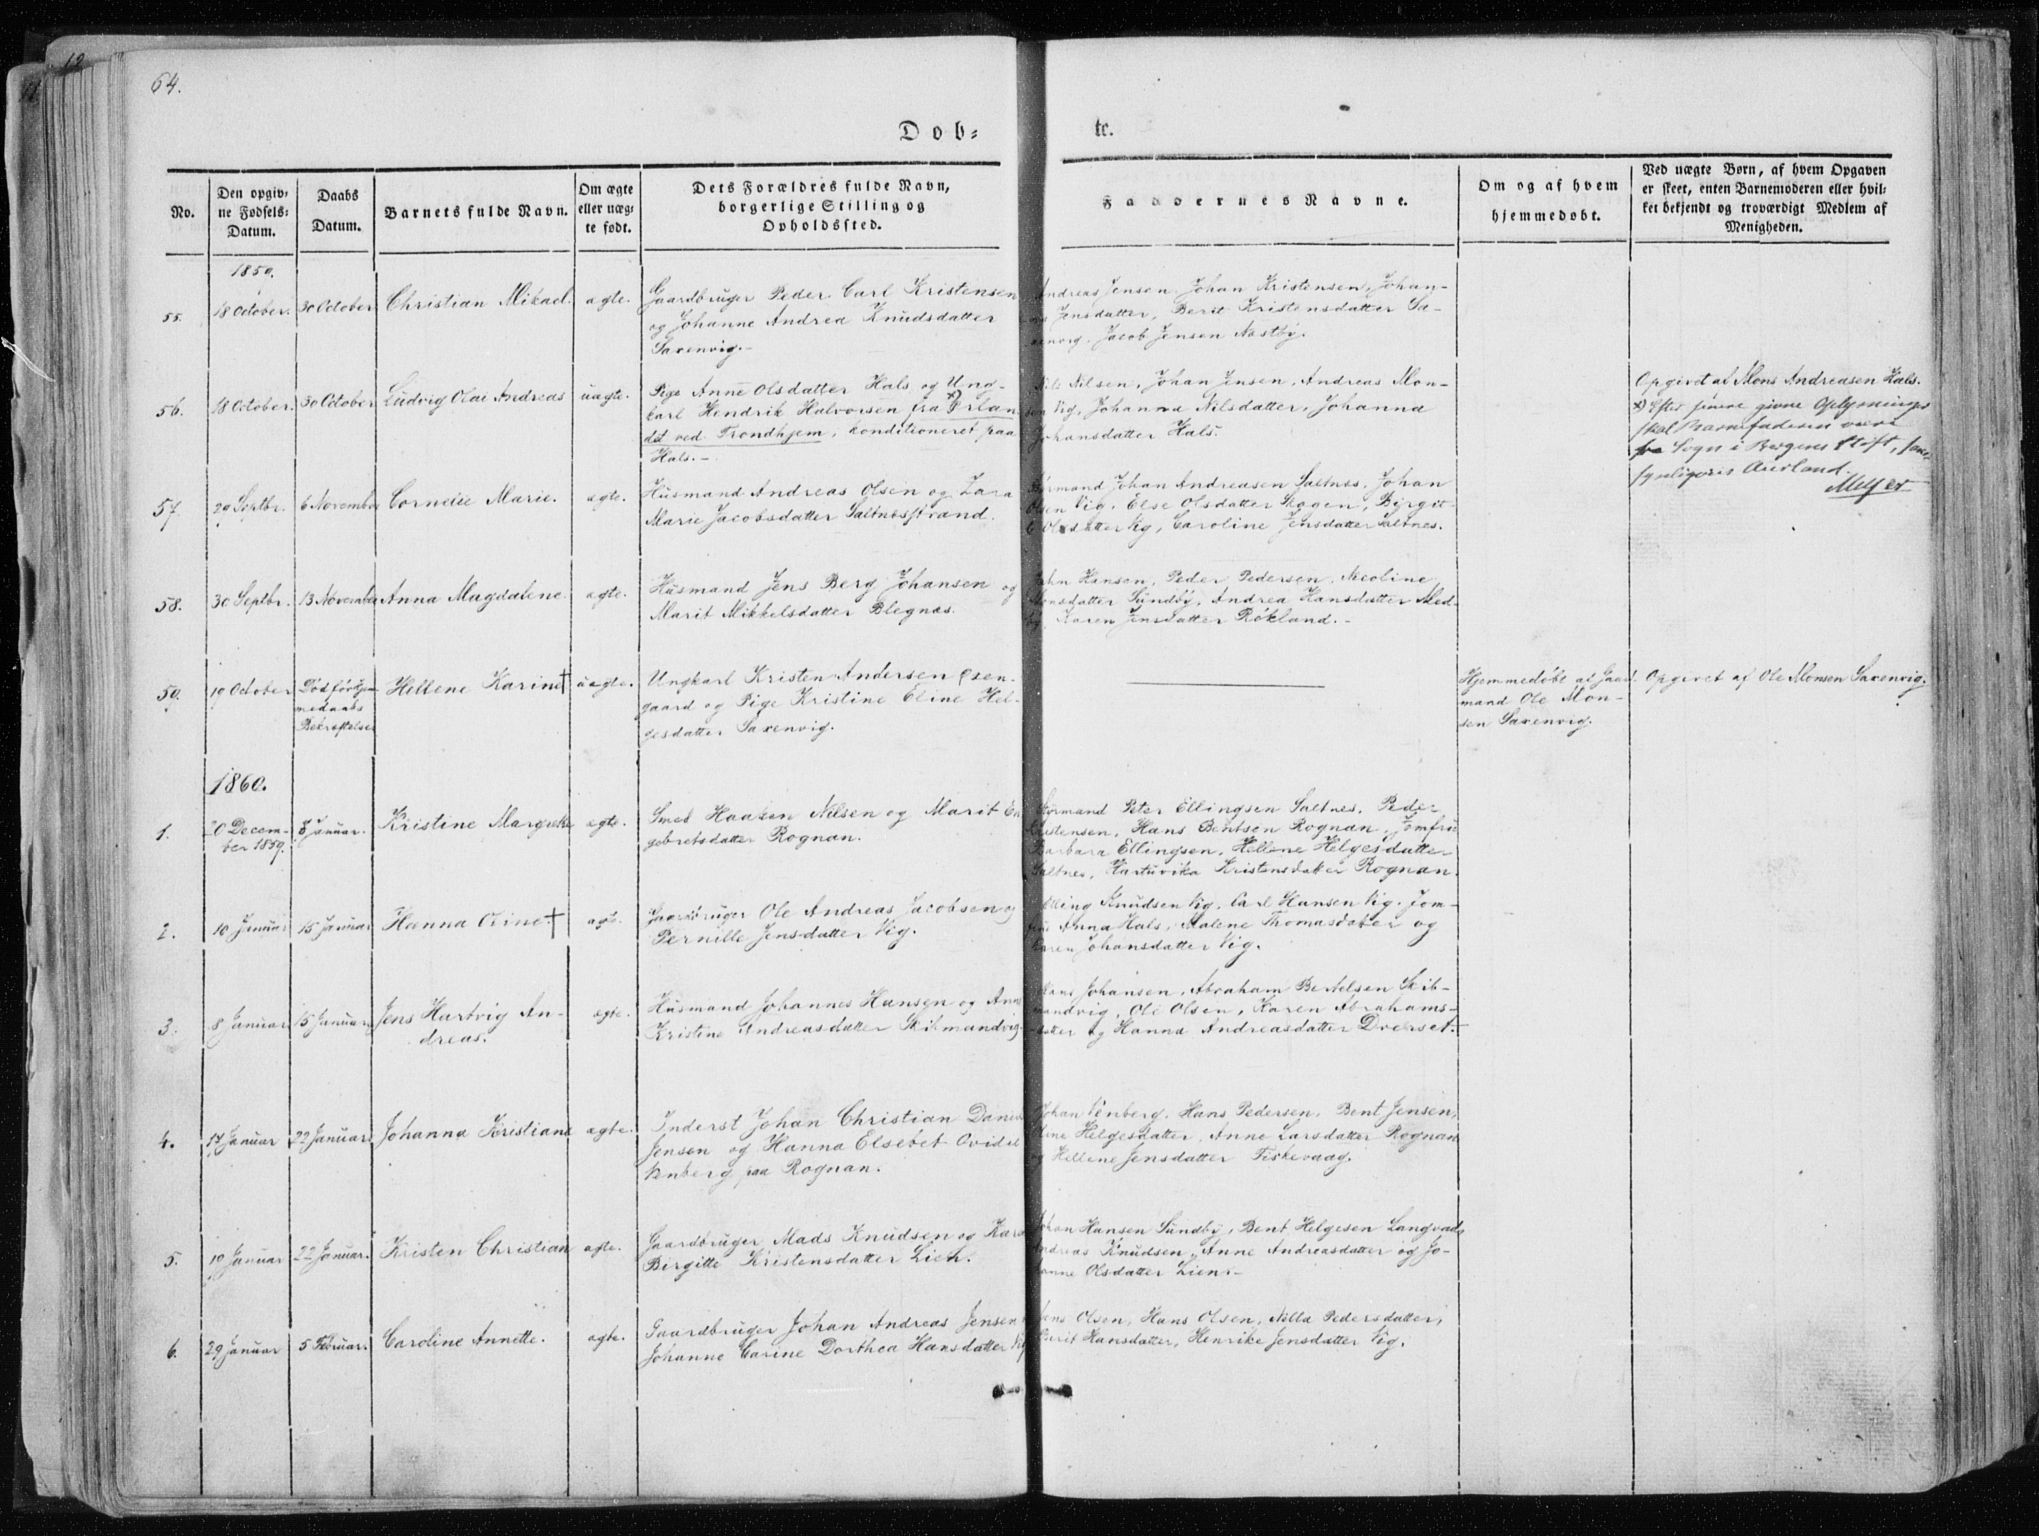 64.
Døb-
te.
No.
Den opgiv-
ne Fødsels-
Datum.
Daabs
Datum.
Barnets fulde Navn.
Om ægte
eller uæg-
te født.
Dets Forældres fulde Navn,
borgerlige Stilling og
Opholdssted.
Faddernes Navne.
Om og af hvem
hjemmedøbt.
Ved uægte Børn, af hvem Opgaven
er skeet, enten Barnemoderen eller hvil-
ket bekjendt og troværdigt Medlem af
Menigheden.
1859.
55. 18 October. 30 October Christian Mikael. ægte. Gaardbruger Peder Carl Kristensen
og Johanne Andrea Knudsdatter
Saxenvig.-
Andreas Jensen. Johan Kristensen, Johan-
Jensdatter, Berit Kristensdatter Sa-
xenvig. Jacob Jensen Næstby.
56. 18 October. 30 October Ludvig Olai Andreas uægte. Pige Anne Olsdatter Hals og Ung-
karl Hendrik Halvorsen fra x) Ørlan-
det ved Trondhjem, konditioneret paa
Hals.-
Nils Nilsen, Johan Jensen, Andreas Mon-
sen Vig, Johanna Nilsdatter, Johanna
Johansdatter Hals.
Opgivet af Mons Andreasen Hals.
x) Efter senere givne Oplysninger
skal Barnefaderen være
fra Sogn i Bergens Stift,
synligviis Aurland.
57. 29 Septbr. 6 November Cornelie Marie. ægte. Husmand Andreas Olsen og Lara
Marie Jacobsdatter Saltnesstrand.
Styrmand Johan Andreasen Saltnes, Johan
Olsen Vig, Else Olsdatter Skogen, Birgit-
te Olsdatter Vig, Caroline Jensdatter Saltnes.
58. 30 Septbr. 13 November Anna Magdalene. ægte. Husmand Jens Berg Johansen og
Marit Mikkelsdatter Blegnæs.
John Hansen, Peder Pedersen, Nicoline
Monsdatter Sundby, Andrea Hansdatter Med-
by, Karen Jensdatter Røkland.-
59. 19 October Død før Hjem-
medaabs
Bekræftelse Hellene Karine † uægte. Ungkarl Kristen Andersen Øxen-
gaard og Pige Kristine Eline Hel-
gesdatter Saxenvig.
Hjemmedøbt af Gaard-
mand Ole Mon-
sen Saxenvig.
Opgivet af Ole Monsen Saxenvig.
1860.
1. 20 Decem-
ber 1859. 8 Januar. Kristine Margrethe ægte. Smed Haaken Nilsen og Marit En-
gebretsdatter Rognan.
Styrmand Peter Ellingsen Saltnes, Peder
Kristensen, Hans Bentsen Rognan, Jomfru
Barbara Ellingsen, Hellene Helgesdatter
Saltnes, Hartvika Kristensdatter Rognan.
2. 10 Januar 15 Januar Hanna Oline † ægte. Gaardbruger Ole Andreas Jacobsen og
Pernille Jensdatter Vig.
Elling Knudsen Vig, Carl Hansen Vig. Jom-
fru Anna Hals, Malene Thomasdatter og
Karen Johansdatter Vig.
3. 8 Januar 15 Januar Jens Hartvig An-
dreas. ægte. Husmand Johannes Hansen og Anne
Kristine Andreasdatter Skibmandvig.
Hans Johansen, Abraham Bentsen Skib-
mandvig, Ole Olsen, Karen Abrahams-
datter og Hanna Andreasdatter Dverset.
4. 17 Januar 22 Januar Johanna Kristiane ægte. Inderst Johan Christian Daniel
Jensen og Hanna Elsebet Ovidel
Venberg paa Rognan.
Johan Venberg, Hans Pedersen, Bent Jensen,
Eline Helgesdatter, Anne Larsdatter Rognan
og Hellene Jensdatter Fiskevaag.
5. 10 Januar 22 Januar. Kristen Christian ægte. Gaardbruger Mads Knudsen og Karen
Birgitte Kristensdatter Lien.
Johan Hansen Sundby, Bent Helgesen Langvad,
Andreas Knudsen, Anne Andreasdatter og Jo-
hanne Olsdatter Lien.-
6. 29 Januar 5 Februar. Caroline Annette. ægte. Gaardbruger Johan Andreas Jensen
Johanne Carine Dorthea Hansdatter Vig
Jens Olsen, Hans Olsen, Nilla Pedersdatter,
Marit Hansdatter, Henrike Jensdatter Vig.